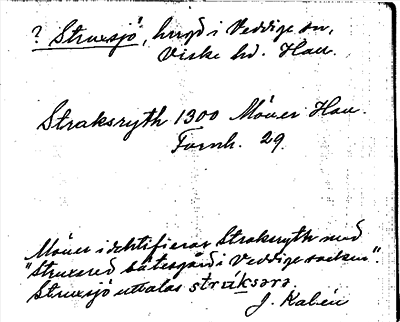 ? Struxsjö, hmgd i Veddige sn,
Viske hd. Hall.
Straksryth 1300 Möller Hall.
Fornh. 29.
Möller identifierar Straksryth med
"Struxered sätesgård i Veddige socken".
Struxsjö uttalas strúksərə.
J. Kalén